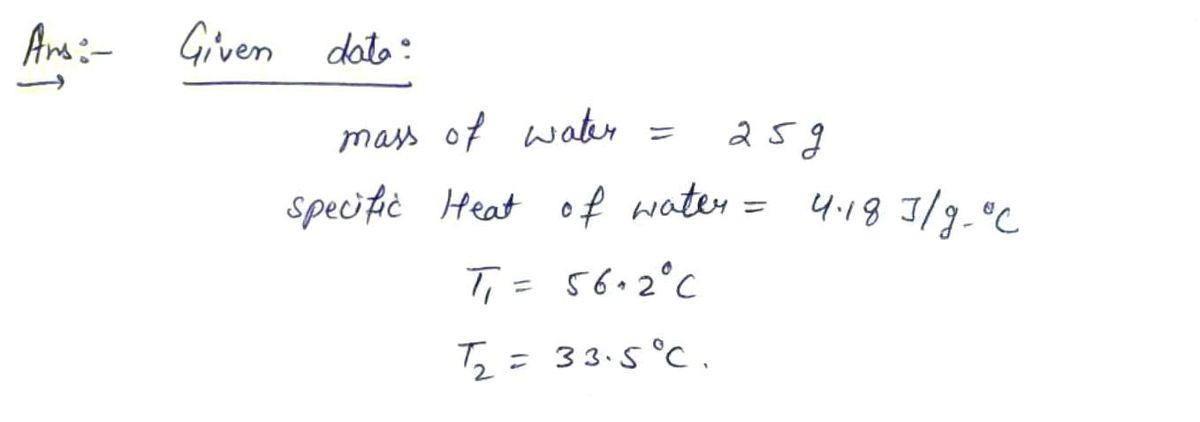 Ans:- Given data:
mass of water = 25g
specific Heat of water = 4.18 J/g-°C
T₁ = 56.2°C
T₂ = 33.5°C.